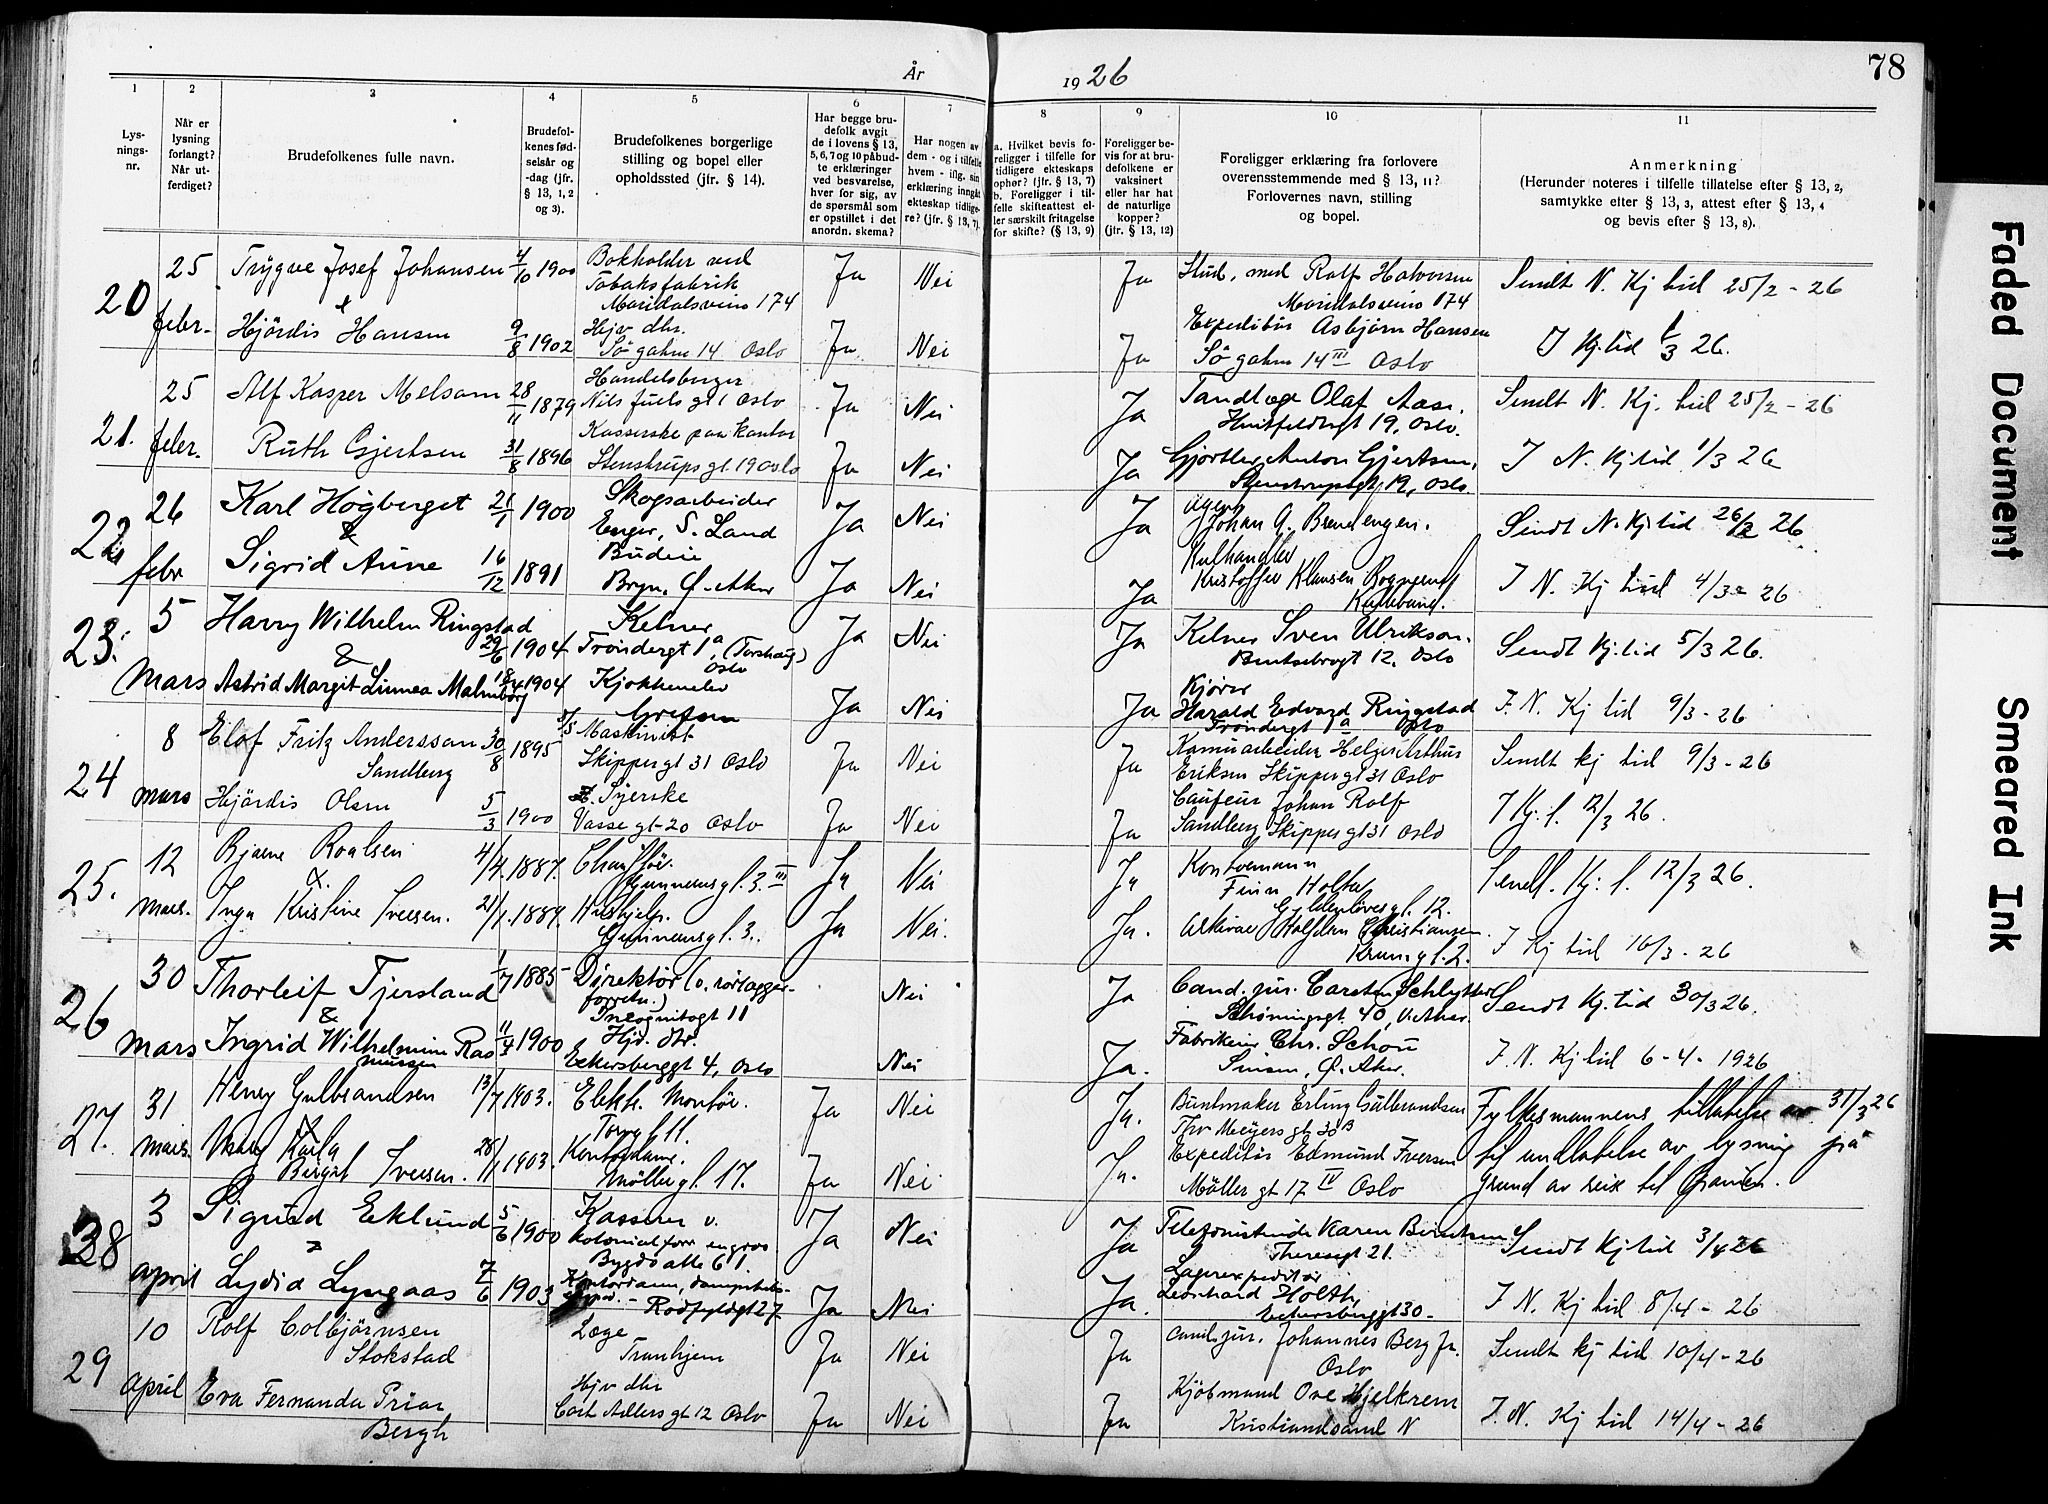 År 1926
78
1 2 3 4 5 6 7 8 9 10 11
Lys-
nings-
nr.
Når er
lysning
forlangt?
Når ut-
ferdiget?
Brudefolkenes fulle navn.
Brudefol-
kenes fød-
selsår og
-dag (jfr.
§ 13, 1, 2
og 3).
Brudefolkenes borgerlige
stilling og bopel eller
opholdssted (jfr. § 14).
Har begge bru-
defolk avgit
de i lovens § 13,
5, 6, 7 og 10 påbud-
te erklæringer
ved besvarelse,
hver for sig, av
de spørsmål som
er opstillet i det
anordn. skema?
Har nogen av
dem - og i tilfelle
hvem - iflg. sin
erklæring inngått
ekteskap tidlige-
re? (jfr. § 13, 7).
a. Hvilket bevis fo-
religger i tilfelle for
tidligere ekteskaps
ophør? (jfr. § 13, 7)
b. Foreligger i til-
felle skifteattest el-
ler særskilt fritagelse
for skifte? (§ 13, 9)
Foreligger be-
vis for at bru-
defolkene er
vaksinert
eller har hat
de naturlige
kopper?
(jfr. § 13, 12)
Foreligger erklæring fra forlovere
overensstemmende med § 13, 11?
Forlovernes navn, stilling
og bopel.
Anmerkning
(Herunder noteres i tilfelle tillatelse efter § 13, 2,
samtykke efter § 13, 3, attest efter § 13, 4
og bevis efter § 13, 8).
20 25 febr. Trygve Josef Johansen 4/10 1900 Bokholder ved
Tobaksfabrik
Maridalsveien 174 Ja Nei Ja Stud. med Rolf Halvorsen
Maridalsveien 174 Sendt N. Kj tid 25/2 - 26
& Hjördis Hansen 9/8 1902 Hejv dtr.
Sö gaten 14 Oslo Ja Nei Ja Expeditör Asbjörn Hansen
Sö gaten 14 III Oslo I Kj. tid 1/3 26.
21. 25 febr. Alf Kasper Melsom 28/11 1879 Handelsborger
Nils Juels gt 1 Oslo Ja Nei Ja Tandlæge Olaf Aase.
Huitfeldtsgt 19, Oslo. Sendt N. Kj. tid 25/2 - 26
Ruth Gjertsen 31/8 1896 Kasserske paa kontor
Stenstrups gt 19 Oslo Ja Nei Ja Gjørtler Anton Gjertsen,
Stenstrupsgt 19, Oslo. I N. Kj tid 1/3 26
22 26 febr Karl Högberget 21/1 1900 Skogsarbeider
Enger, S. Land Ja Nei Ja Agent
Johan G. Brenengen. Sendt N. Kj tid 26/2 26
& Sigrid Aune 16/12 1891 Budeie
Bryn, Ö. Aker Ja Nei Ja Kulhandler
Kristoffer Klausen
I N. Kj tid 4/3 - 26
23. 5 mars Harry Wilhelm Ringstad 29/6 1904 Kelner
Trondergt 1a, (Torshaug)
Oslo Ja Nei Ja Kelner Sven Ulrikson.
Bentsebrogt 12, Oslo Sendt Kj. tid 5/3 26.
& Astrid Margit Linnea Malmborg 18/4 1904 Kjökkenelev
Grefsen Ja Nei Ja Kjörer
Harald Edvard Ringstad
Trondergt 1a Oslo I. N. Kj tid 9/3 - 26
24 8 mars Elof Fritz Anderssen
Sandberg 30/8 1895 Maskinist
Skippergt 31 Oslo Ja Nei Ja Helge Arthur
Eriksen Skippergt 31 Oslo Sendt kj tid 9/3 - 26
Hjördis Olsen 5/3 1900 Syerske
Vasse gt 20 Oslo Ja Nei Ja Caufeur Johan Rolf
Sandberg Skippergt 31 Oslo I Kj. t. 12/3 26.
25. 12 mars. Bjarne Roalsen 4/4. 1887. Chauffør.
Gunnersgt. 3. III Ja Nei Ja Kontormann
Finn Holter
Gyldenløvesgt. 12. Sendt. Kj. t. 12/3 26.
& Inga Kristine Iversen. 21/1. 1889. Hushjelp.
Gunnersgt. 3. Ja Nei. Ja. Arkivar Halfdan Christiansen.
Krumgt. 2. I Kj tid 16/3 - 26
26 30 mars Thorleif Tjersland 1/7 1885 Direktör (v. rörlegger-
forretn.)
Incognitogt 11 Nei Ja Cand. jur. Carsten Schlytter
Schöningsgt. 40, V. Aker. Sendt Kj. tid 30/3 26.
& Ingrid Wilhelmine Ras
mussen 11/4 1900 Hjv. dtr.
Eckersberggt 4, Oslo Nei Ja. Fabrikeier Chr. Schou
Sinsen, Ö. Aker. I. N. Kj tid 6 - 4 - 1926
27. 31 mars. Henry Gulbrandsen 13/7 1903. Elektr. Montör.
Torvgt 11. Ja Nei Ja. Buntmaker Erling Gulbrandsen
Thv Meyers gt 30 B Fylkesmannens tillatelse av 31/3 26
& Karla
Bergit Iversen. 28/11 1903. Kontordame.
Möllergt. 17. Ja Nei Ja. Expeditör Edmund Iversen
Möller gt 17 IV Oslo til undlatelse av lysning på
grund av reise til
28 3 april Sigurd Eklund 5/6 1900 Kasserer v.
kolonialforr engros
Bygdö alle 61. Ja Nei Ja Telefonistinde Karen Berntsen
Theresgt 21. Sendt Kj tid 3/4 26
& Lydia Lyngaas 7/6 1903 Kontordame, dampskibs-
exped. - Rodfyldgt 27 Ja Nei Ja. Lagerexpeditör
Leonhard Holth,
Eckersberggt 30 - I N. Kj tid 8/4 - 26
29 10 april Rolf Colbjörnsen
Stokstad Læge
Tranhjem Ja Nei Ja Cand. jur. Johannes Berg Jr.
Oslo Sendt kj tid 10/4 - 26
Eva Fernanda Prior
Bergh Hjv dtr
Cort Adlers gt 12 Oslo Ja Nei Ja Kjöbmand Ove Hjelkrem
Kristiansund N I. N. Kj tid 14/4 - 26
Faded Document
Smeared Ink